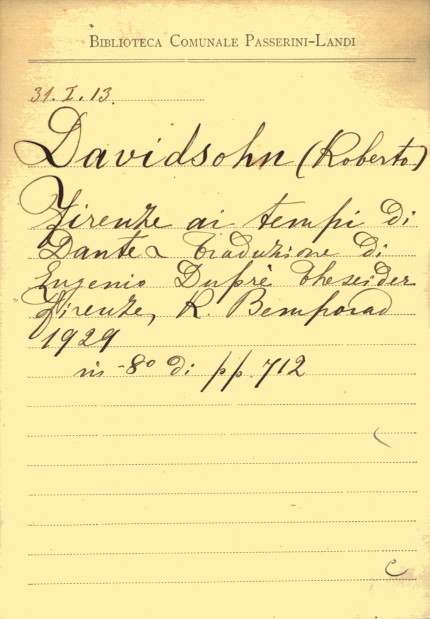 BIBLIOTECA COMUNALE PASSERINI-LANDI
31. I. 13.
Davidsohn (Roberto)
Firenze ai tempi di
Dante Traduzione di
Eugenio Duprè Theseider
Firenze, R. Bemporad
1929
in -8º di pp. 712
C